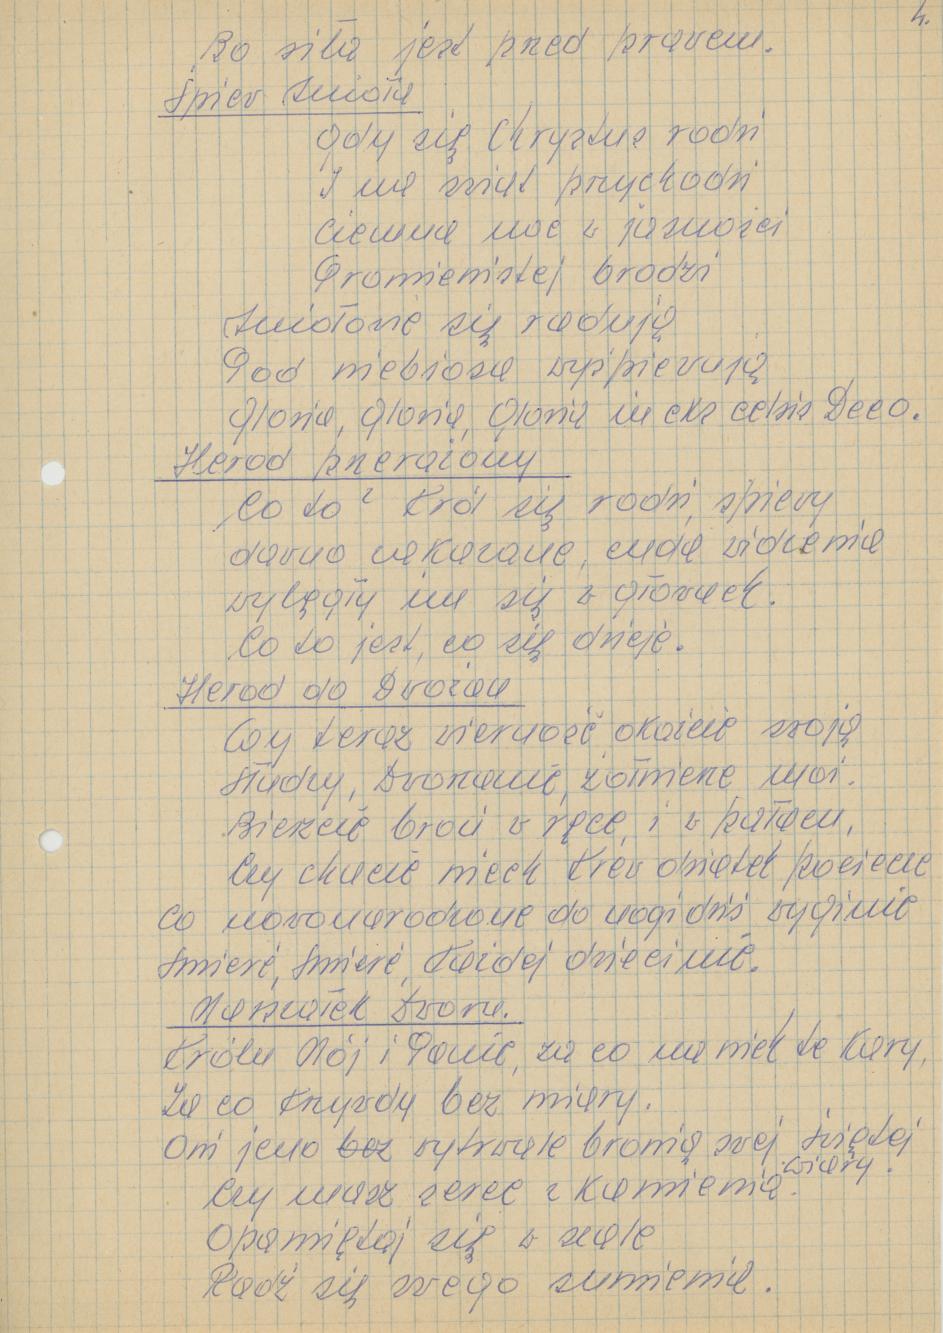 4.
Bo siła jest pred prawem.
Śpiew Anioła
Gdy się Chrystus rodzi
I na świat przychodzi
Ciemna noc w jasności
Promienistej brodzi
Aniołowie się radują
Pod niebiosa wyśpiewują
Gloria, Gloria, Gloria in eks celsis Deeo.
Herod przerażony
Co to? Król się rodzi, śpiewy
dawno nakazane, cuda widzenia
wylęgły im się w głowach.
Co to jest, co się dzieje.
Herod do Dworzan
Czy teraz wierność okażcie swoją
Słudzy, Dworzanie, żołnierze moi.
Bierzcie broń w ręce, i w pałacu,
Czy chacie niech krew dziatek pociecze
Co nowonarodzone do nogi dziś wyginie
Śmierć, Śmierć, każdej dziecinie.
Marszałek Dworu.
Królu Mój i Panie, za co na nich te kary,
Za co krzywdy bez miary.
Oni jeno bez wytrwale bronią swej świętej
wiary.
Czy masz serce z kamienia.
Opamiętaj się w szale
Radź się swego sumienia.